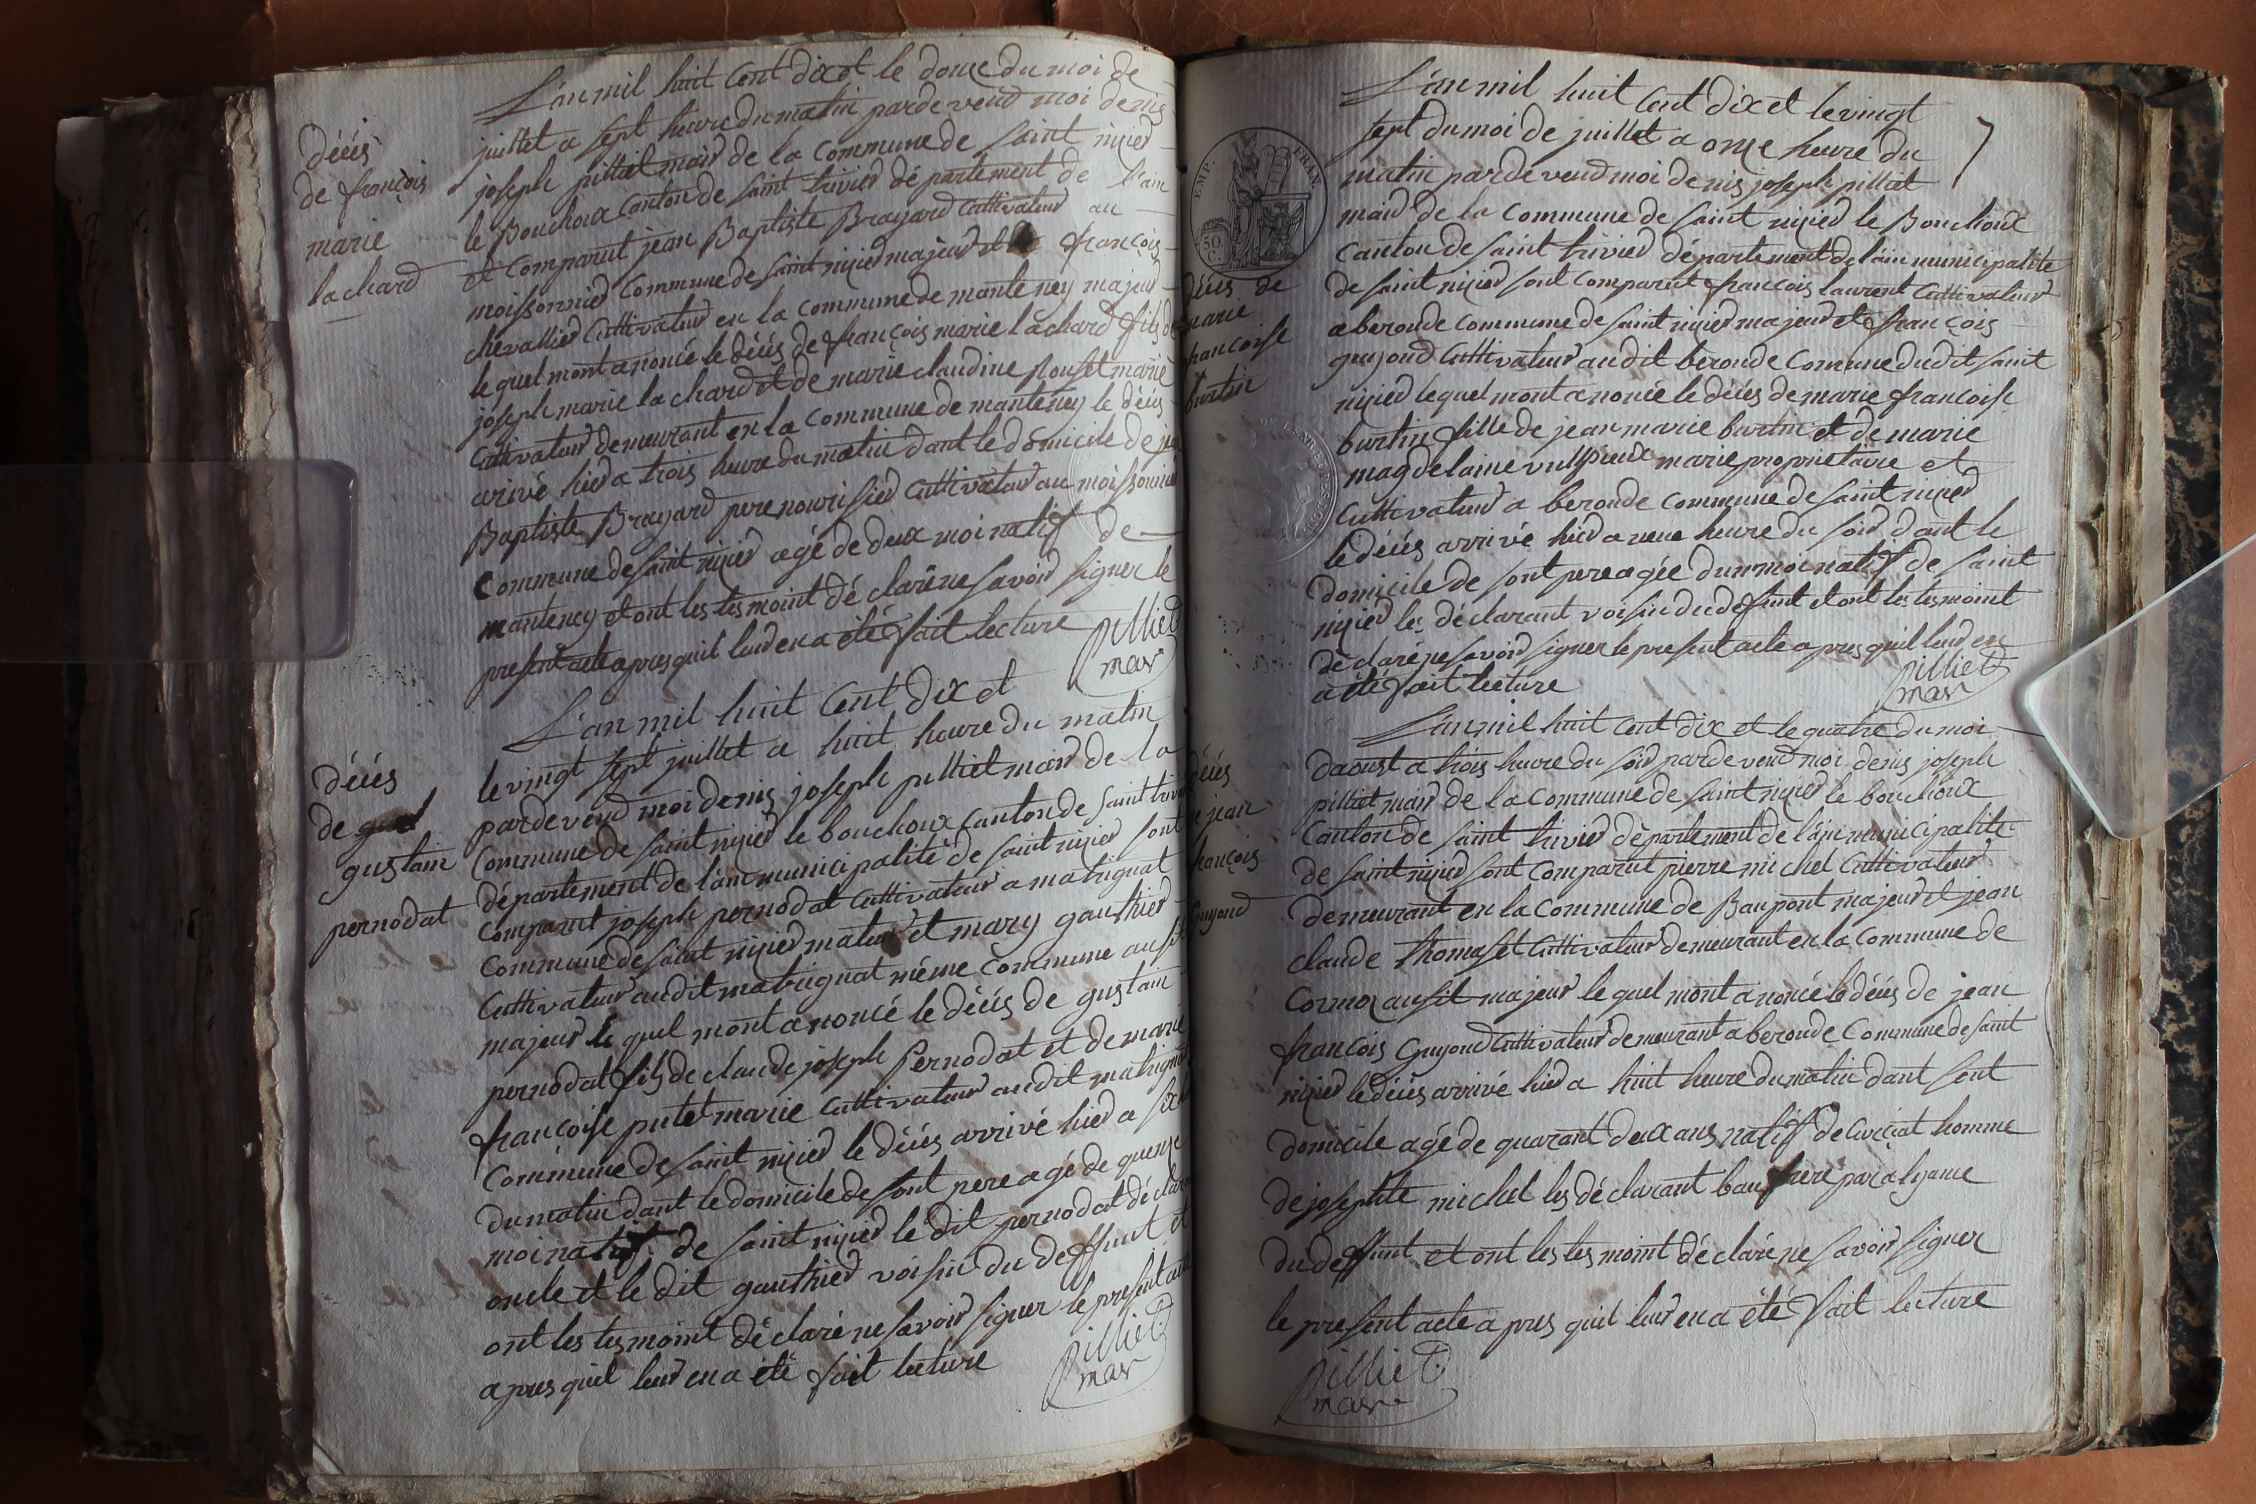 L'an mil huit Cent dix et le douze du moi de
juillet a sept heure du matin pardevend moi denis
joseph pilliet maird de la Commune de saint nizier
le Bouchoux Canton de saint trivied département de l'ain
et Comparut jean Baptiste Brayard Cultivateur au
moissonnied Commune de saint nizied majeur et françois
chevallied Cultivateur en la commune de manteney majeur
le quel mont anoncé le décés de françois marie lachard fils de
joseph marie lachard et de marie claudine marié
Cultivateur demeurant en la Commune de manteney le décés
arivé hied a trois heure du matin dant le domicile de
Baptiste Brayard pere nourisied Cultivateur au moissonnied
Commune de saint nizied agé de deux moi natif de
manteney et ont les tesmoint déclaré ne savoir signer le
present acte apres quil leur en a été fait lecture
pilliet
mar
décés
de françois
marie
lachard
L'an mil huit Cent dix et
le vingt sept juillet a huit heure du matin
pardevend moi denis joseph pilliet maird de la
Commune de saint nizied le bouchoux Canton de saint
département de l'ain municipalité de saint nizied sont
Comparut joseph pernodat Cultivateur a matrignat
Commune de saint nizied et mary gauthied
Cultivateur audit matrignat même Commune
majeur le quel mont anoncé le décés de gustain
pernodat fils de claude joseph Pernodat et de marie
françoise putet marié Cultivateur audit
Commune de saint nizied le décés arrivé hied a
du matin dant le domicile de sont pere agé de quenze
moi natif de saint nizied le dit pernodat
oncle et le dit gauthied voisin du deffunt et
ont les tesmoint déclaré ne savoir signer le present
apres quil leur en a été fait lecture
pilliet
mar
décés
de
gustain
pernodat
EMP. FRAN.
50
C.
7
L'an mil huit Cent dix et le vingt
sept du moi de juillet a onze heure du
matin pardevend moi denis joseph pilliet
maird de la Commune de saint nizied le Bouchoux
Canton de saint trivied département de l'ain municipalité
de saint nizied sont Comparut françois laurent Cultivateur
a beronde Commune de saint nizied majeur et françois
guyond Cultivateur audit beronde Comune dudit saint
nizied lequel mont anoncé le décés de marie françoise
burtin fille de jean marie burtin et de marie
magdelaine marie proprietaire et
Cultivateur a beronde Commune de saint nizied
le décés arrivé hied a heure du soir dant le
domicile de sont pere agée dun moi natif de saint
nizied les déclarant voisin du defunt et ont les tesmoint
déclaré ne savoir signer le present acte apres quil leur en
a été fait lecture
pilliet
mar
décés de
marie
françoise
burtin
L'an mil huit Cent dix et le quatre du moi
daoust a trois heure du soir pardevend moi denis joseph
pilliet maird de la Commune de saint nizied le bouchoux
Canton de saint trivied département de l'ain municipalité
de saint nizied sont Comparut pierre michel Cultivateur
demeurant en la Commune de Baupont majeur et jean
claude thomaset Cultivateur demeurant en la Commune de
Cormoz ausit majeur le quel mont anoncé le décés de jean
françois Guyond Cultivateur demeurant a beronde Commune de saint
nizied le décés arrivé hied a huit heure du matin dant sont
domicile agé de quarant deux ans natiff de Curciat homme
de josephte michel les déclarant bau frere par alyance
du deffunt et ont les tesmoint déclaré ne savoir signer
le present acte apres quil leur en a été fait lecture
pilliet
mar
décés
jean
françois
Guyond